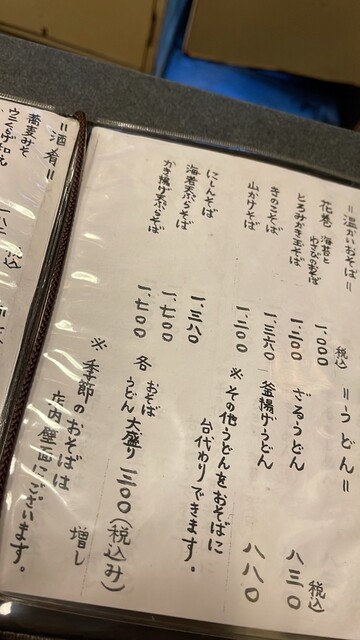 =温かいおそば=
税込
花巻 海苔と
わさびのおそば 一、000
とろみかき玉そば 一、二00
きのこそば 一、三六0
山かけそば 一、二00
にしんそば 一、三八0
海老天ぷらそば 一、七00
かき揚げ天ぷらそば 一、七00
=うどん=
税込
ざるうどん 八三0
釜揚げうどん 八八0
※その他うどんをおそばに
台代わりできます。
各 おそば
うどん 大盛り 三00(税込み)
増し
※季節のおそばは
店内壁画にございます。
=酒肴=
税込
蕎麦みそ